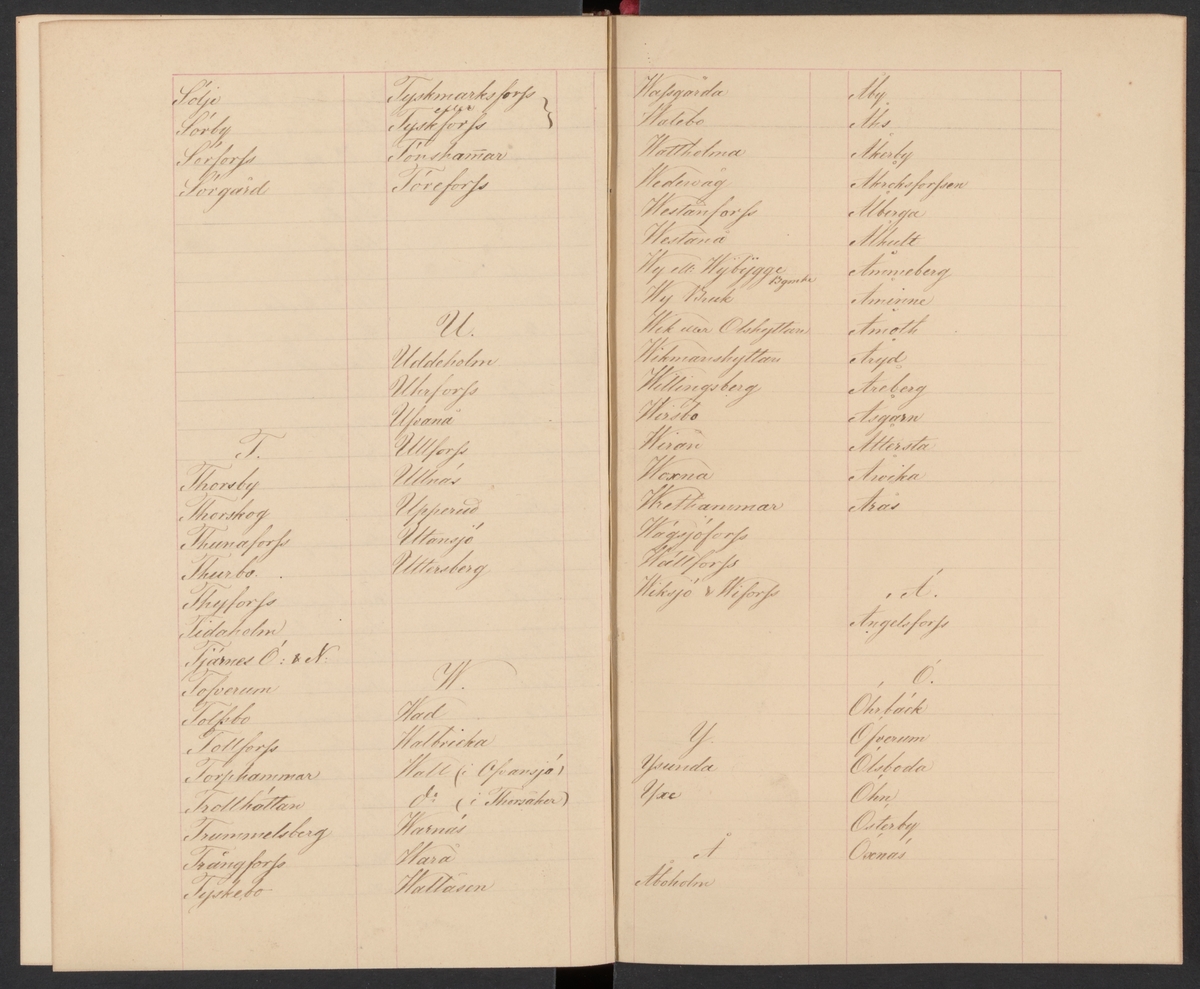 Sölje
Sörby
Sörforss
Sörgård
T.
Thorsby
Thorskog
Thunaforss
Thurbo
Thyforss
Tidaholm
Tjärnes Ö: & N:
Tofverum
Tolfsbo
Tollforss
Torpshammar
Trollhättan
Trummelsberg
Trångforss
Tyskebo
Tyskmarksforss
eller
Tyskforss
Tönshamar
Töreforss
U.
Uddeholm
Uhrforss
Ufvanå
Ullforss
Ullnäs
Upperud
Utansjö
Uttersberg
W.
Wad
Walbricka
Wall (i Ofvansjö)
do (i Thorsåker)
Warnäs
Wara
Wattåsen
Wassgärda
Watebo
Wattholma
Wedevåg
Westanforss
Westanå
Wy ell: Wybygge
Wy Bruk
Wik eller Olshyttan
Wikmanshyttan
Willingsberg
Wirsbo
Wirån
Woxna
Wrethammar
Wågsjöforss
Wällforss
Wiksjö & Wiforss
Y.
Ysunda
Yxe
Å
Åboholm
Åby
Åhs
Åkerby
Åkroksforssen
Ålberga
Ålhult
Åmmeberg
Åminne
Åmoth
Åryd
Åreberg
Åsgarn
Åttersta
Årvika
Årås
Ä.
Ängelsforss
Ö.
Öhrbäck
Öfverum
Ölsboda
Öhn
Österby
Öxnäs